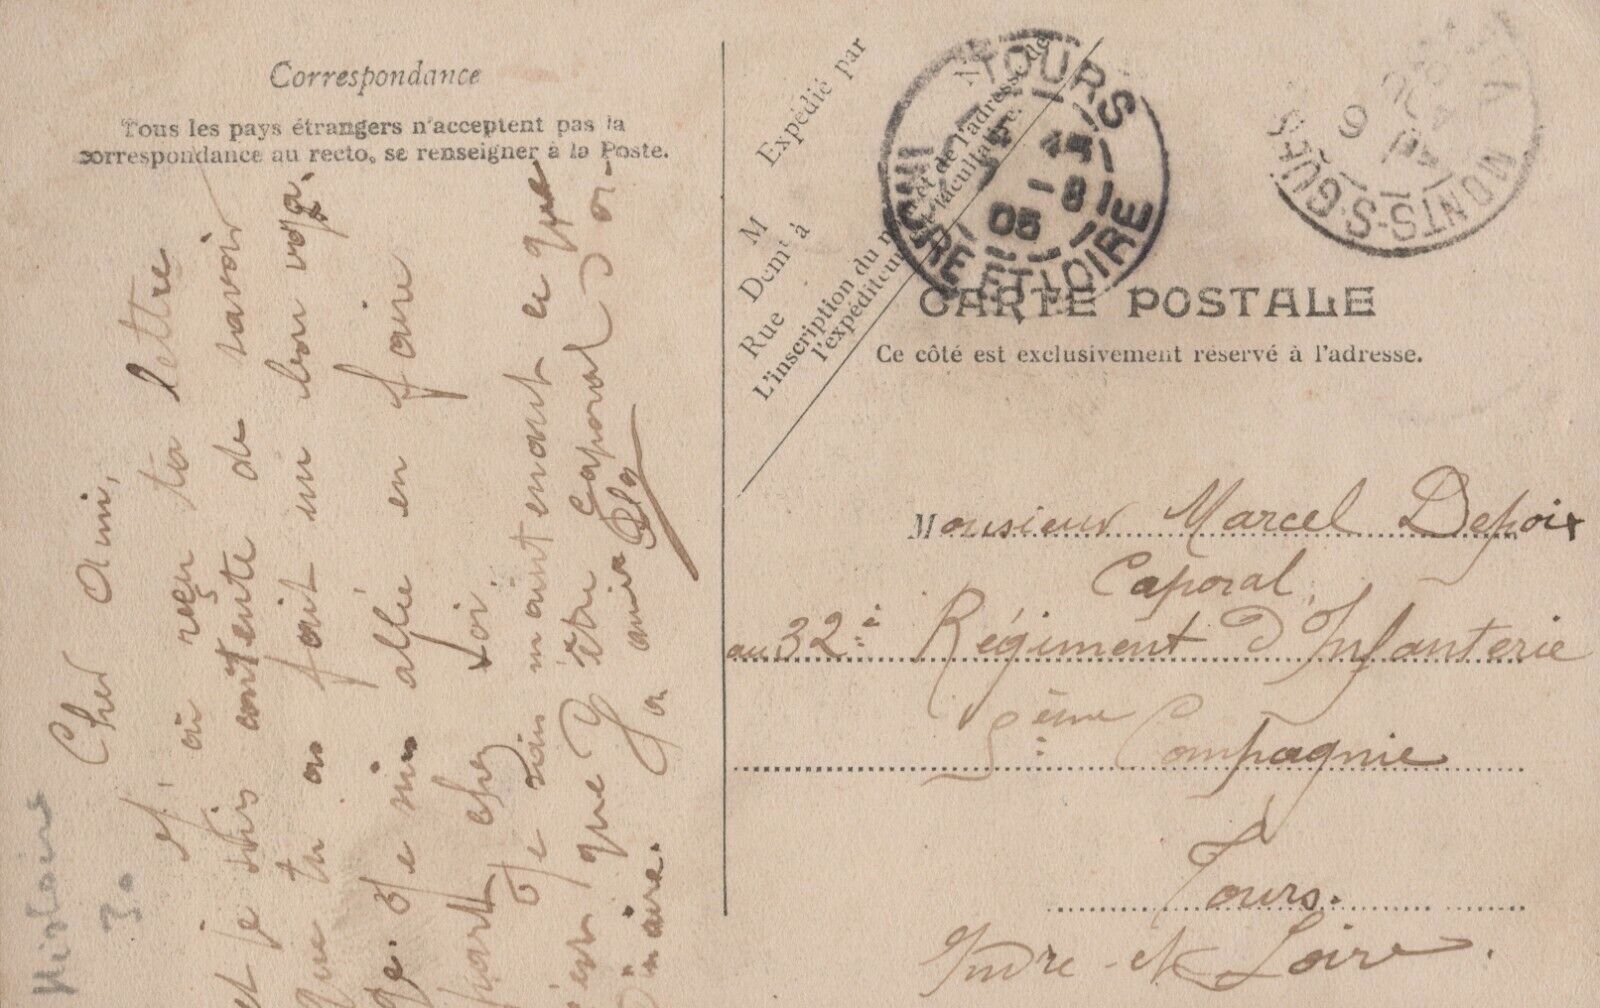 Correspondance
Tous les pays étrangers n'acceptent pas la
correspondance au recto, se renseigner à la Poste.
Cher Ami,
J'ai reçu ta lettre
et je suis contente de savoir
que tu as fait un bon voya-
ge. Je m'en allée en faire
part chez toi.
Je sais maintenant ce que
c'est que d'être caporal d'or-
dinaire.
Ta amie
Expédié par
M
Demt à
Rue
N
L'inscription du nom et de l'adresse de
l'expéditeur est facultative.
TOURS
45
8
05
INDRE ET LOIRE
MONTS-S-GUESNES
9
CARTE POSTALE
Ce côté est exclusivement réservé à l'adresse.
Monsieur Marcel Depoix
Caporal
au 32e Régiment d'Infanterie
5ème Compagnie
Tours.
Indre-et-Loire.
30